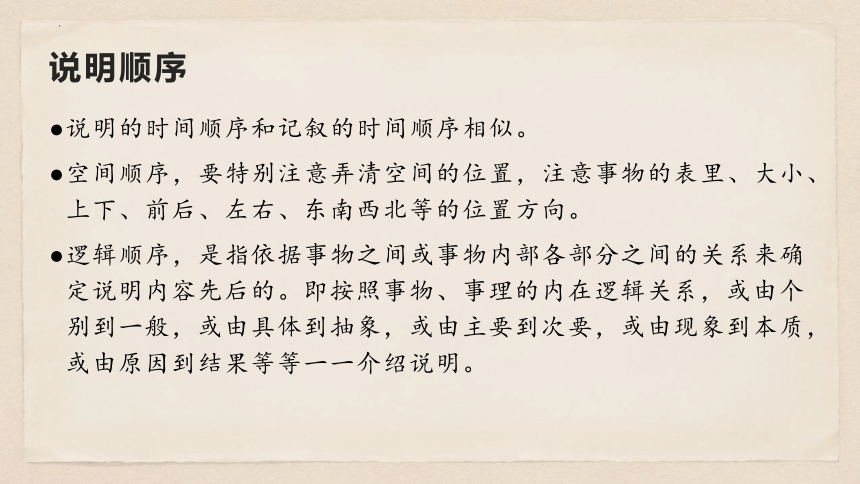 说明顺序
●说明的时间顺序和记叙的时间顺序相似。
●空间顺序，要特别注意弄清空间的位置，注意事物的表里、大小、
上下、前后、左右、东南西北等的位置方向。
●逻辑顺序，是指依据事物之间或事物内部各部分之间的关系来确
定说明内容先后的。即按照事物、事理的内在逻辑关系，或由个
别到一般，或由具体到抽象，或由主要到次要，或由现象到本质，
或由原因到结果等等一一介绍说明。